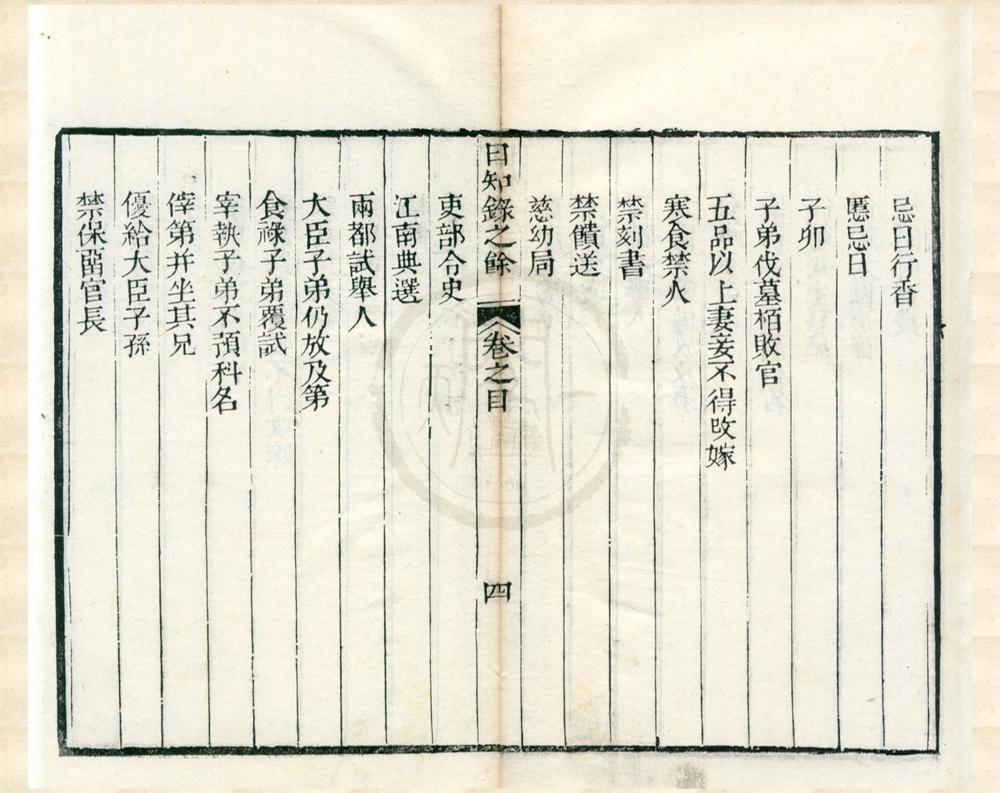 忌日行香
慝忌日
子卯
子弟伐墓栢敗官
五品以上妻妾不得改嫁
寒食禁火
禁刻書
禁饋送
慈幼局
日知錄之餘 卷之目 四
吏部令史
江南典選
兩都試舉人
大臣子弟仍放及第
食祿子弟覆試
宰執子弟不預科名
倅第并坐其兄
優給大臣子孫
禁保留官長